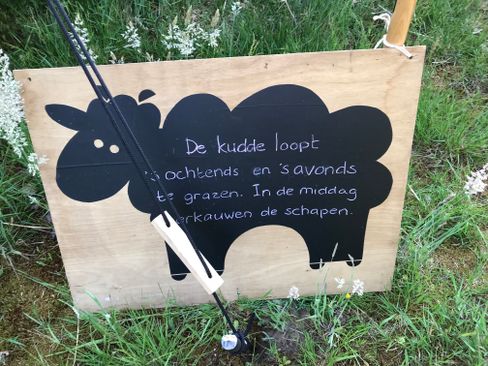 De kudde loopt
's ochtends en 's avonds
te grazen. In de middag
erkauwen de schapen.